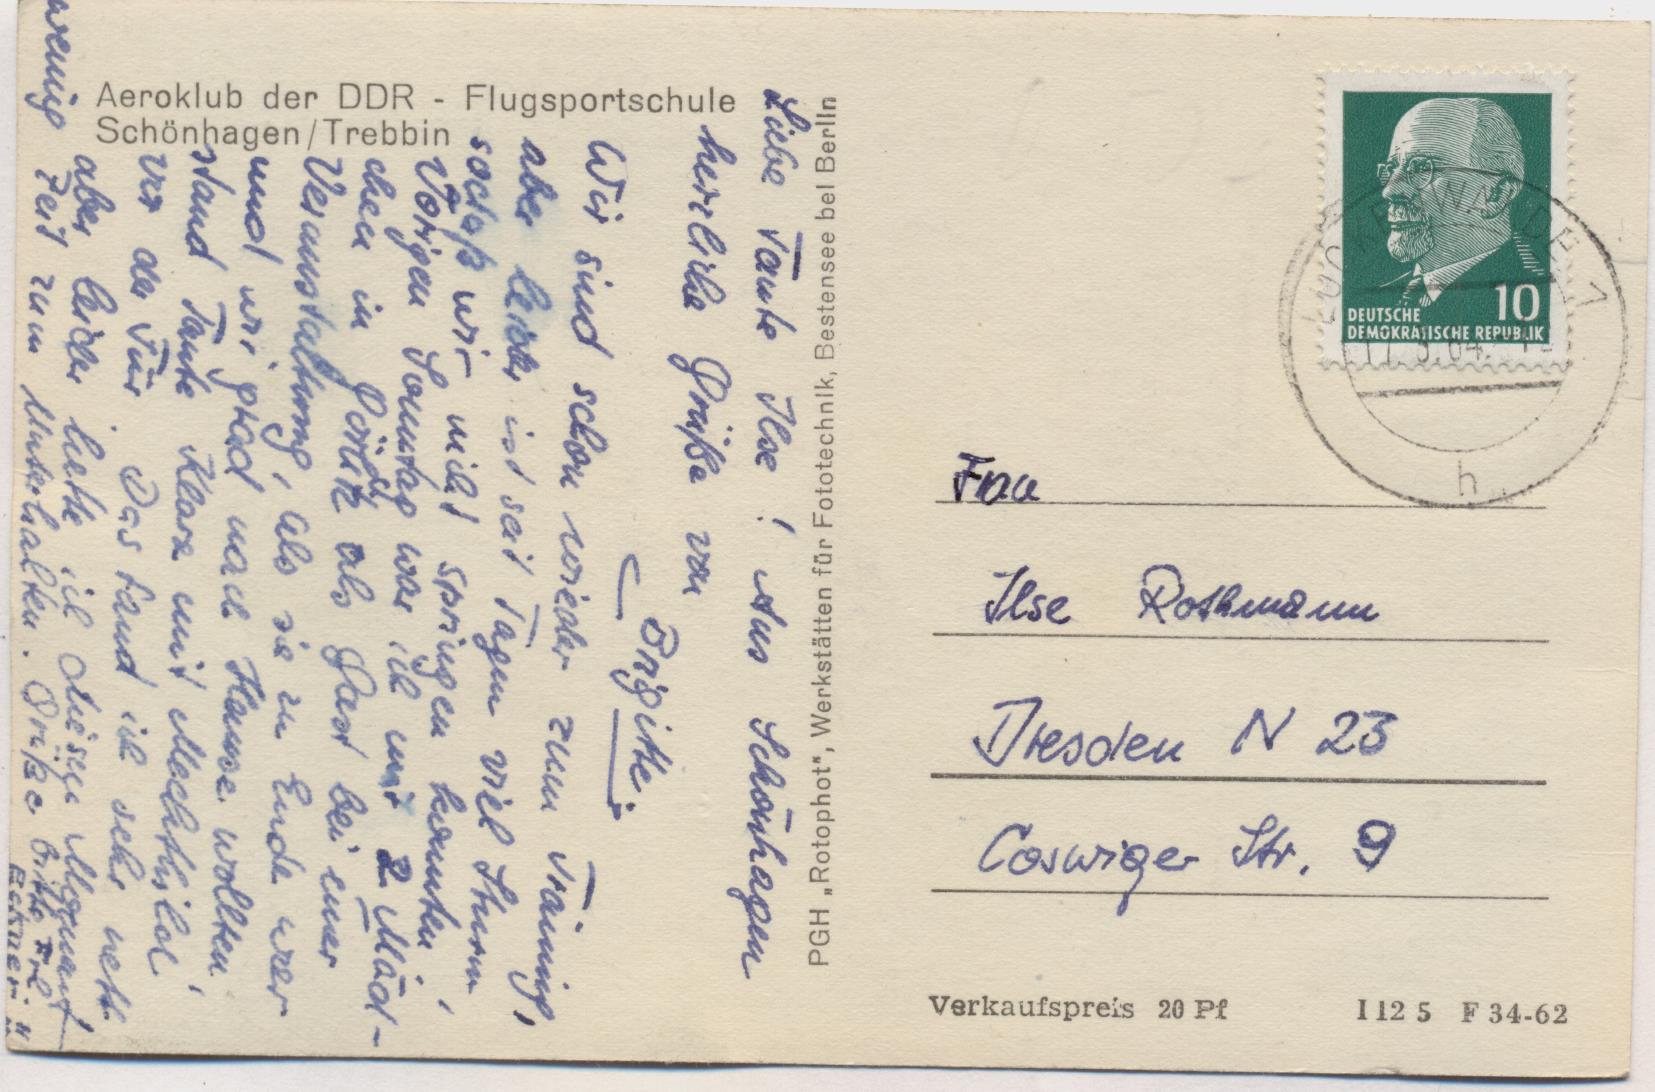 Aeroklub der DDR - Flugsportschule
Schönhagen/Trebbin
Liebe Tante Ilse! Aus Schönhagen
herzliche Grüße von
Brigitte.
Wir sind schon wieder zum Training,
aber leider ist seit Tagen viel Sturm
sodaß wir nicht springen konnten.
Vorigen Sonntag war ich mit 2 Mäd-
chen in Görlitz als Gast bei einer
Veranstaltung, als sie zu Ende war
und wir grad nach Hause wollten,
stand Tante Klara mit Mechthild
vor der Tür. Das fand ich sehr nett
aber leider hatte ich diesen Moment
wenig Zeit zum Unterhalten. Grüße bitte
PGH „Rotophot", Werkstätten für Fototechnik, Bestensee bei Berlin
10
DEUTSCHE
DEMOKRATISCHE REPUBLIK
LUCKENWALDE 1
h
Frau
Ilse Rothmann
Dresden N 23
Coswiger Str. 9
Verkaufspreis 20 Pf I 12 5 F 34-62